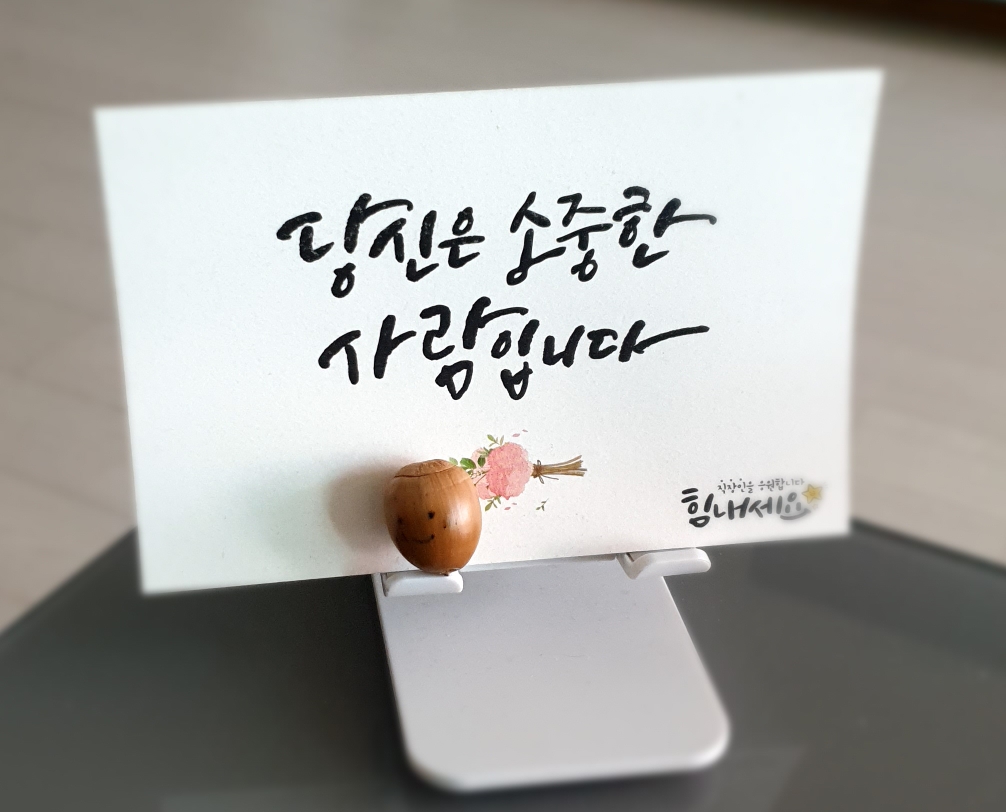 당신은 소중한
사람입니다
직장인을 응원합니다
힘내세요